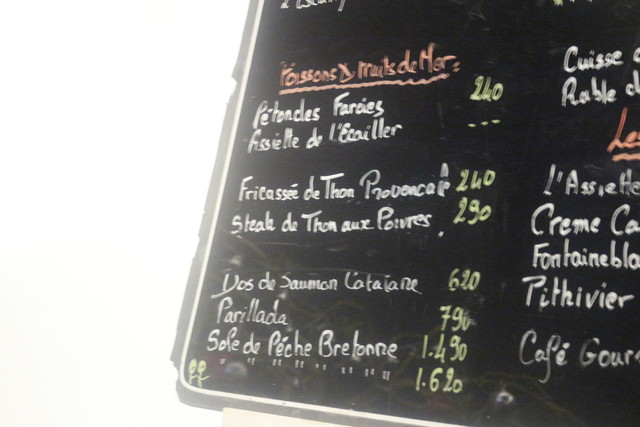 Poissons & Fruits de Mer:
Pétoncles Farcies 240
Assiette de l'Ecailler ---
Fricassée de Thon Provençale 240
Steak de Thon aux Poivres. 290
Dos de Saumon Catalane 620
Parillada 790
Sole de Pêche Bretonne 1.490
" " " " " " " " 1.620
Cuisse
Rable
Les
l'Assiette
Creme Ca
Fontainebla
Pithivier
Café Gour